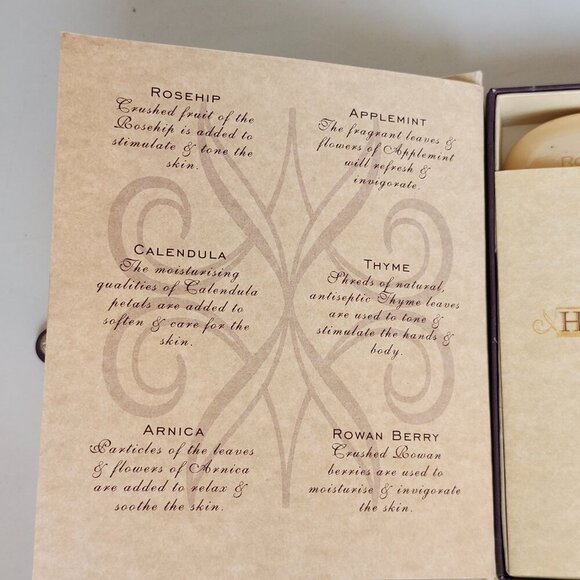 ROSEHIP
Crushed fruit of the
Rosehip is added to
stimulate & tone the
skin.
APPLEMINT
The fragrant leaves &
flowers of Applemint
will refresh &
invigorate.
CALENDULA
The moisturising
qualities of Calendula
petals are added to
soften & care for the
skin.
THYME
Shreds of natural,
antiseptic Thyme leaves
are used to tone &
stimulate the hands &
body.
ARNICA
Particles of the leaves
& flowers of Arnica
are added to relax &
soothe the skin.
ROWAN BERRY
Crushed Rowan
berries are used to
moisturise & invigorate
the skin.
H